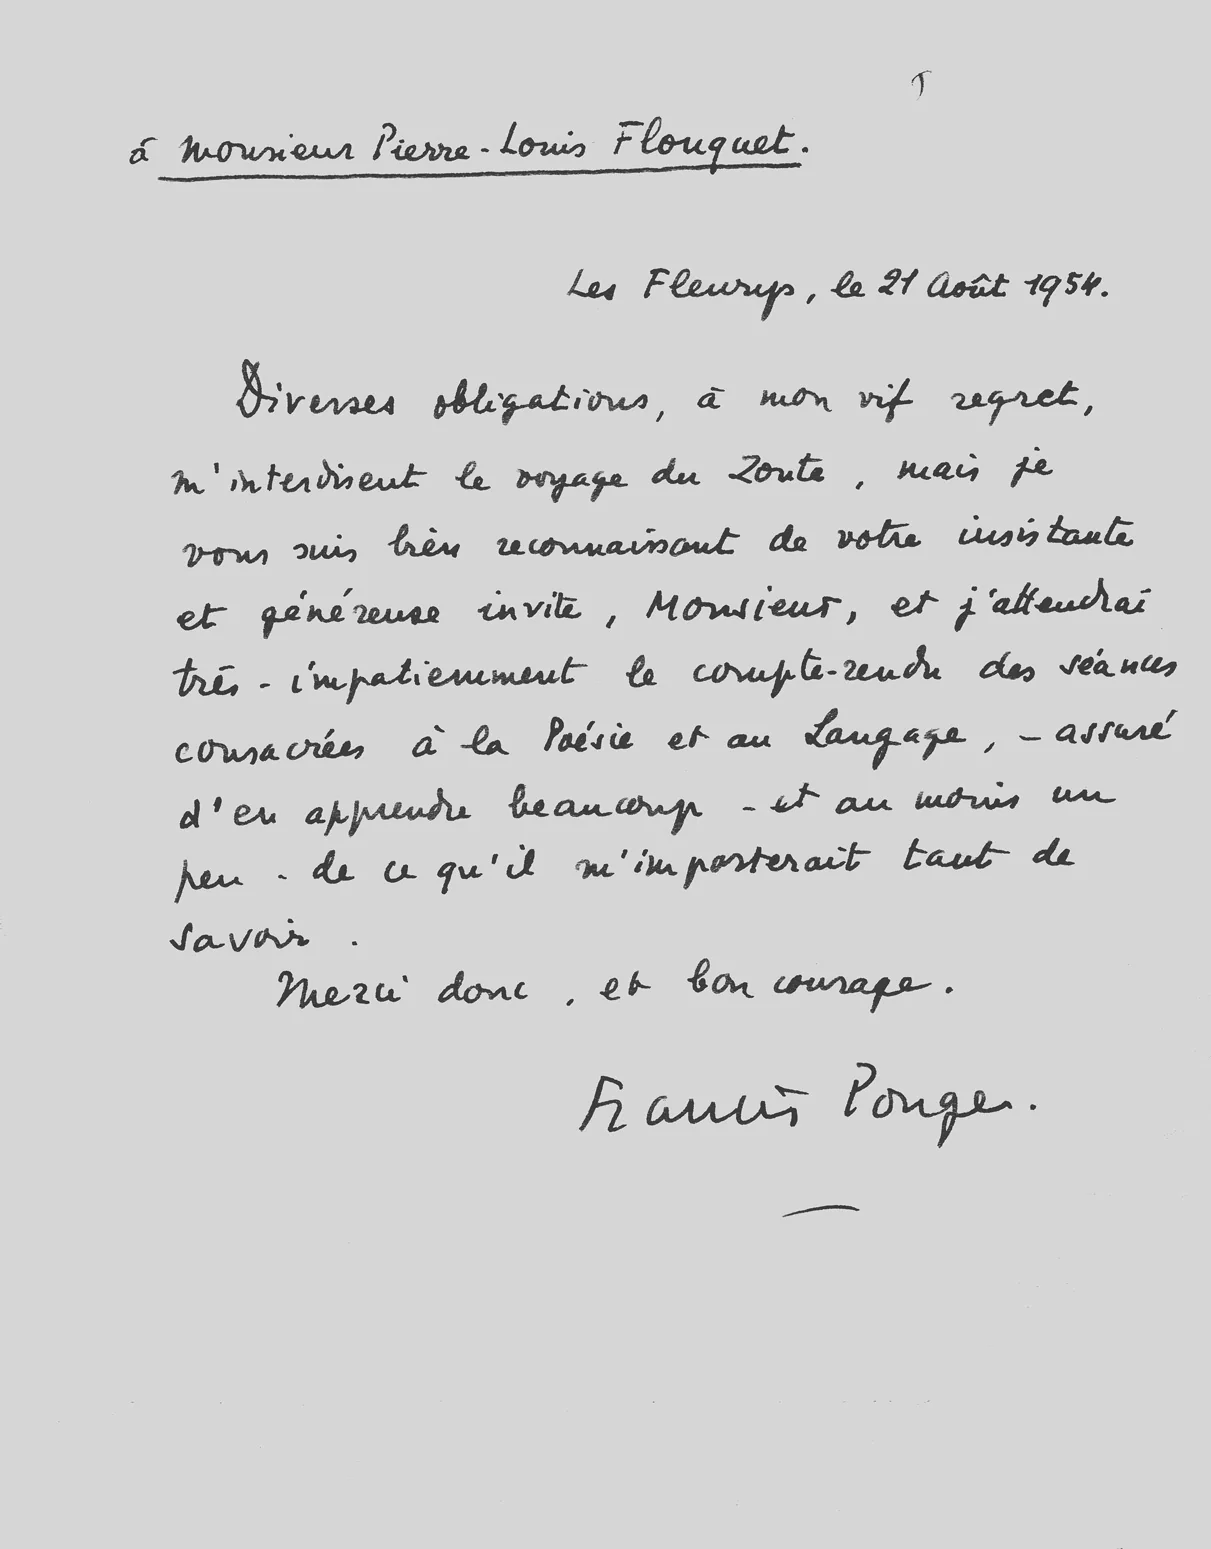 à Monsieur Pierre-Louis Flouquet.
Les Fleurys, le 21 Août 1954.
Diverses obligations, à mon vif regret,
m'interdisent le voyage du Zoute, mais je
vous suis bien reconnaissant de votre insistante
et généreuse invite, Monsieur, et j'attendrai
très-impatiemment le compte-rendu des séances
consacrées à la Poésie et au Langage, – assuré
d'en apprendre beaucoup - et au moins un
peu - de ce qu'il m'importerait tant de
savoir.
Merci donc, et bon courage.
Francis Ponge.